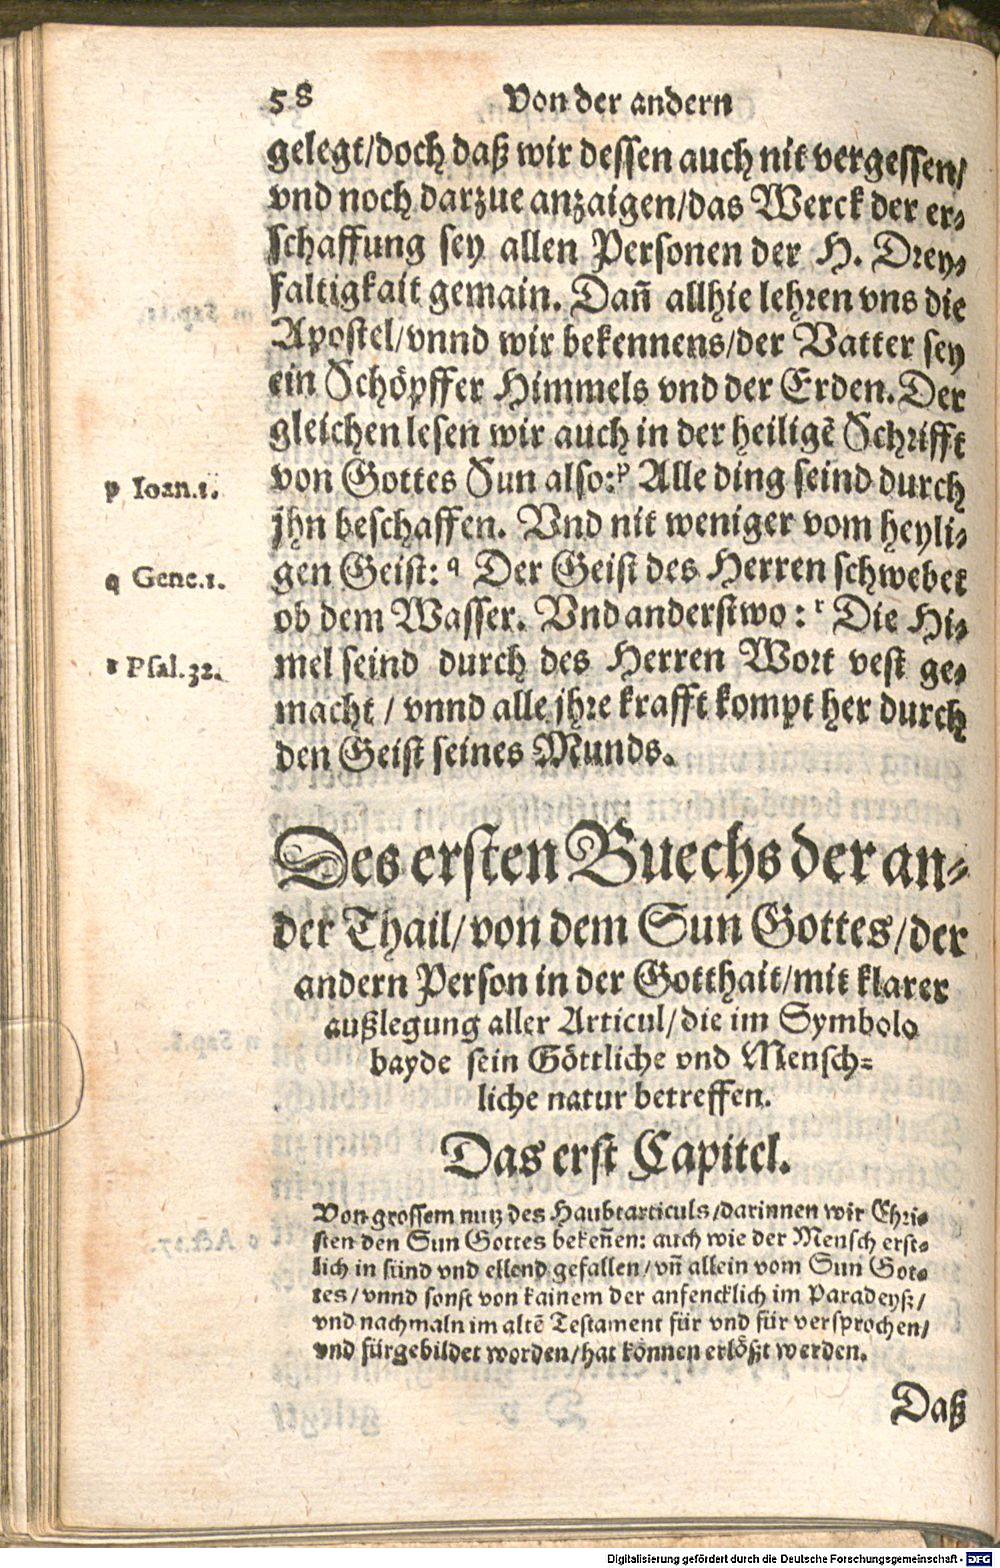 58 Von der andern
gelegt/doch daß wir dessen auch nit vergessen/
vnd noch darzue anzaigen/das Werck der er-
schaffung sey allen Personen der H. Drey-
faltigkait gemain. Dañ allhie lehren vns die
Apostel/vnnd wir bekennens/der Vatter sey
ein Schöpffer Himmels vnd der Erden. Der
gleichen lesen wir auch in der heiligẽ Schrifft
von Gottes Sun also:ᵖ Alle ding seind durch
p Ioan.1.
jhn beschaffen. Vnd nit weniger vom heyli-
gen Geist: q Der Geist des Herren schwebet
q Gene.1.
ob dem Wasser. Vnd anderstwo: ʳ Die Hi-
mel seind durch des Herren Wort vest ge-
r Psal.32.
macht / vnnd alle jhre krafft kompt her durch
den Geist seines Munds.
Des ersten Buechs der an-
der Thail/von dem Sun Gottes/der
andern Person in der Gotthait/mit klarer
außlegung aller Articul/die im Symbolo
bayde sein Göttliche vnd Mensch-
liche natur betreffen.
Das erst Capitel.
Von grossem nutz des Haubtarticuls/darinnen wir Chri-
sten den Sun Gottes bekeñen: auch wie der Mensch erst-
lich in sünd vnd ellend gefallen/vñ allein vom Sun Got-
tes/vnnd sonst von kainem der anfencklich im Paradeyß/
vnd nachmaln im altẽ Testament für vnd für versprochen/
vnd fürgebildet worden/hat können erlößt werden.
Daß
Digitalisierung gefördert durch die Deutsche Forschungsgemeinschaft - DFG